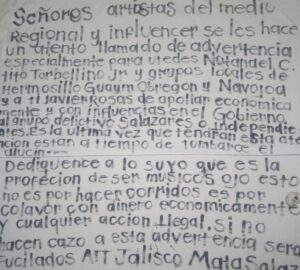 Señores artistas del medio
Regional y influencer se les hace
un atento llamado de advertencia
especialmente para utedes Natandel C.
tito Torbellino Jr y grupos locales de
Hermosillo Guaym Obregon y Navojoa
y a ti Javier Rosas de apollar economica
mente y con influencias en el Gobierno
al grupo defectivo Salazares o independie
ntes. Es la ultima vez que tenaran esta ate
ncion estan a tiempo de tumbarse el
alucin
Dediquence a lo suyo que es la
profecion de ser musicos ojo esto
no es por hacer corridos es por
colavor con dinero economicamente
y cualquier accion Ilegal. si no
hacen cazo a esta advertencia sera
Fucilados ATT Jalisco Mata Salaz